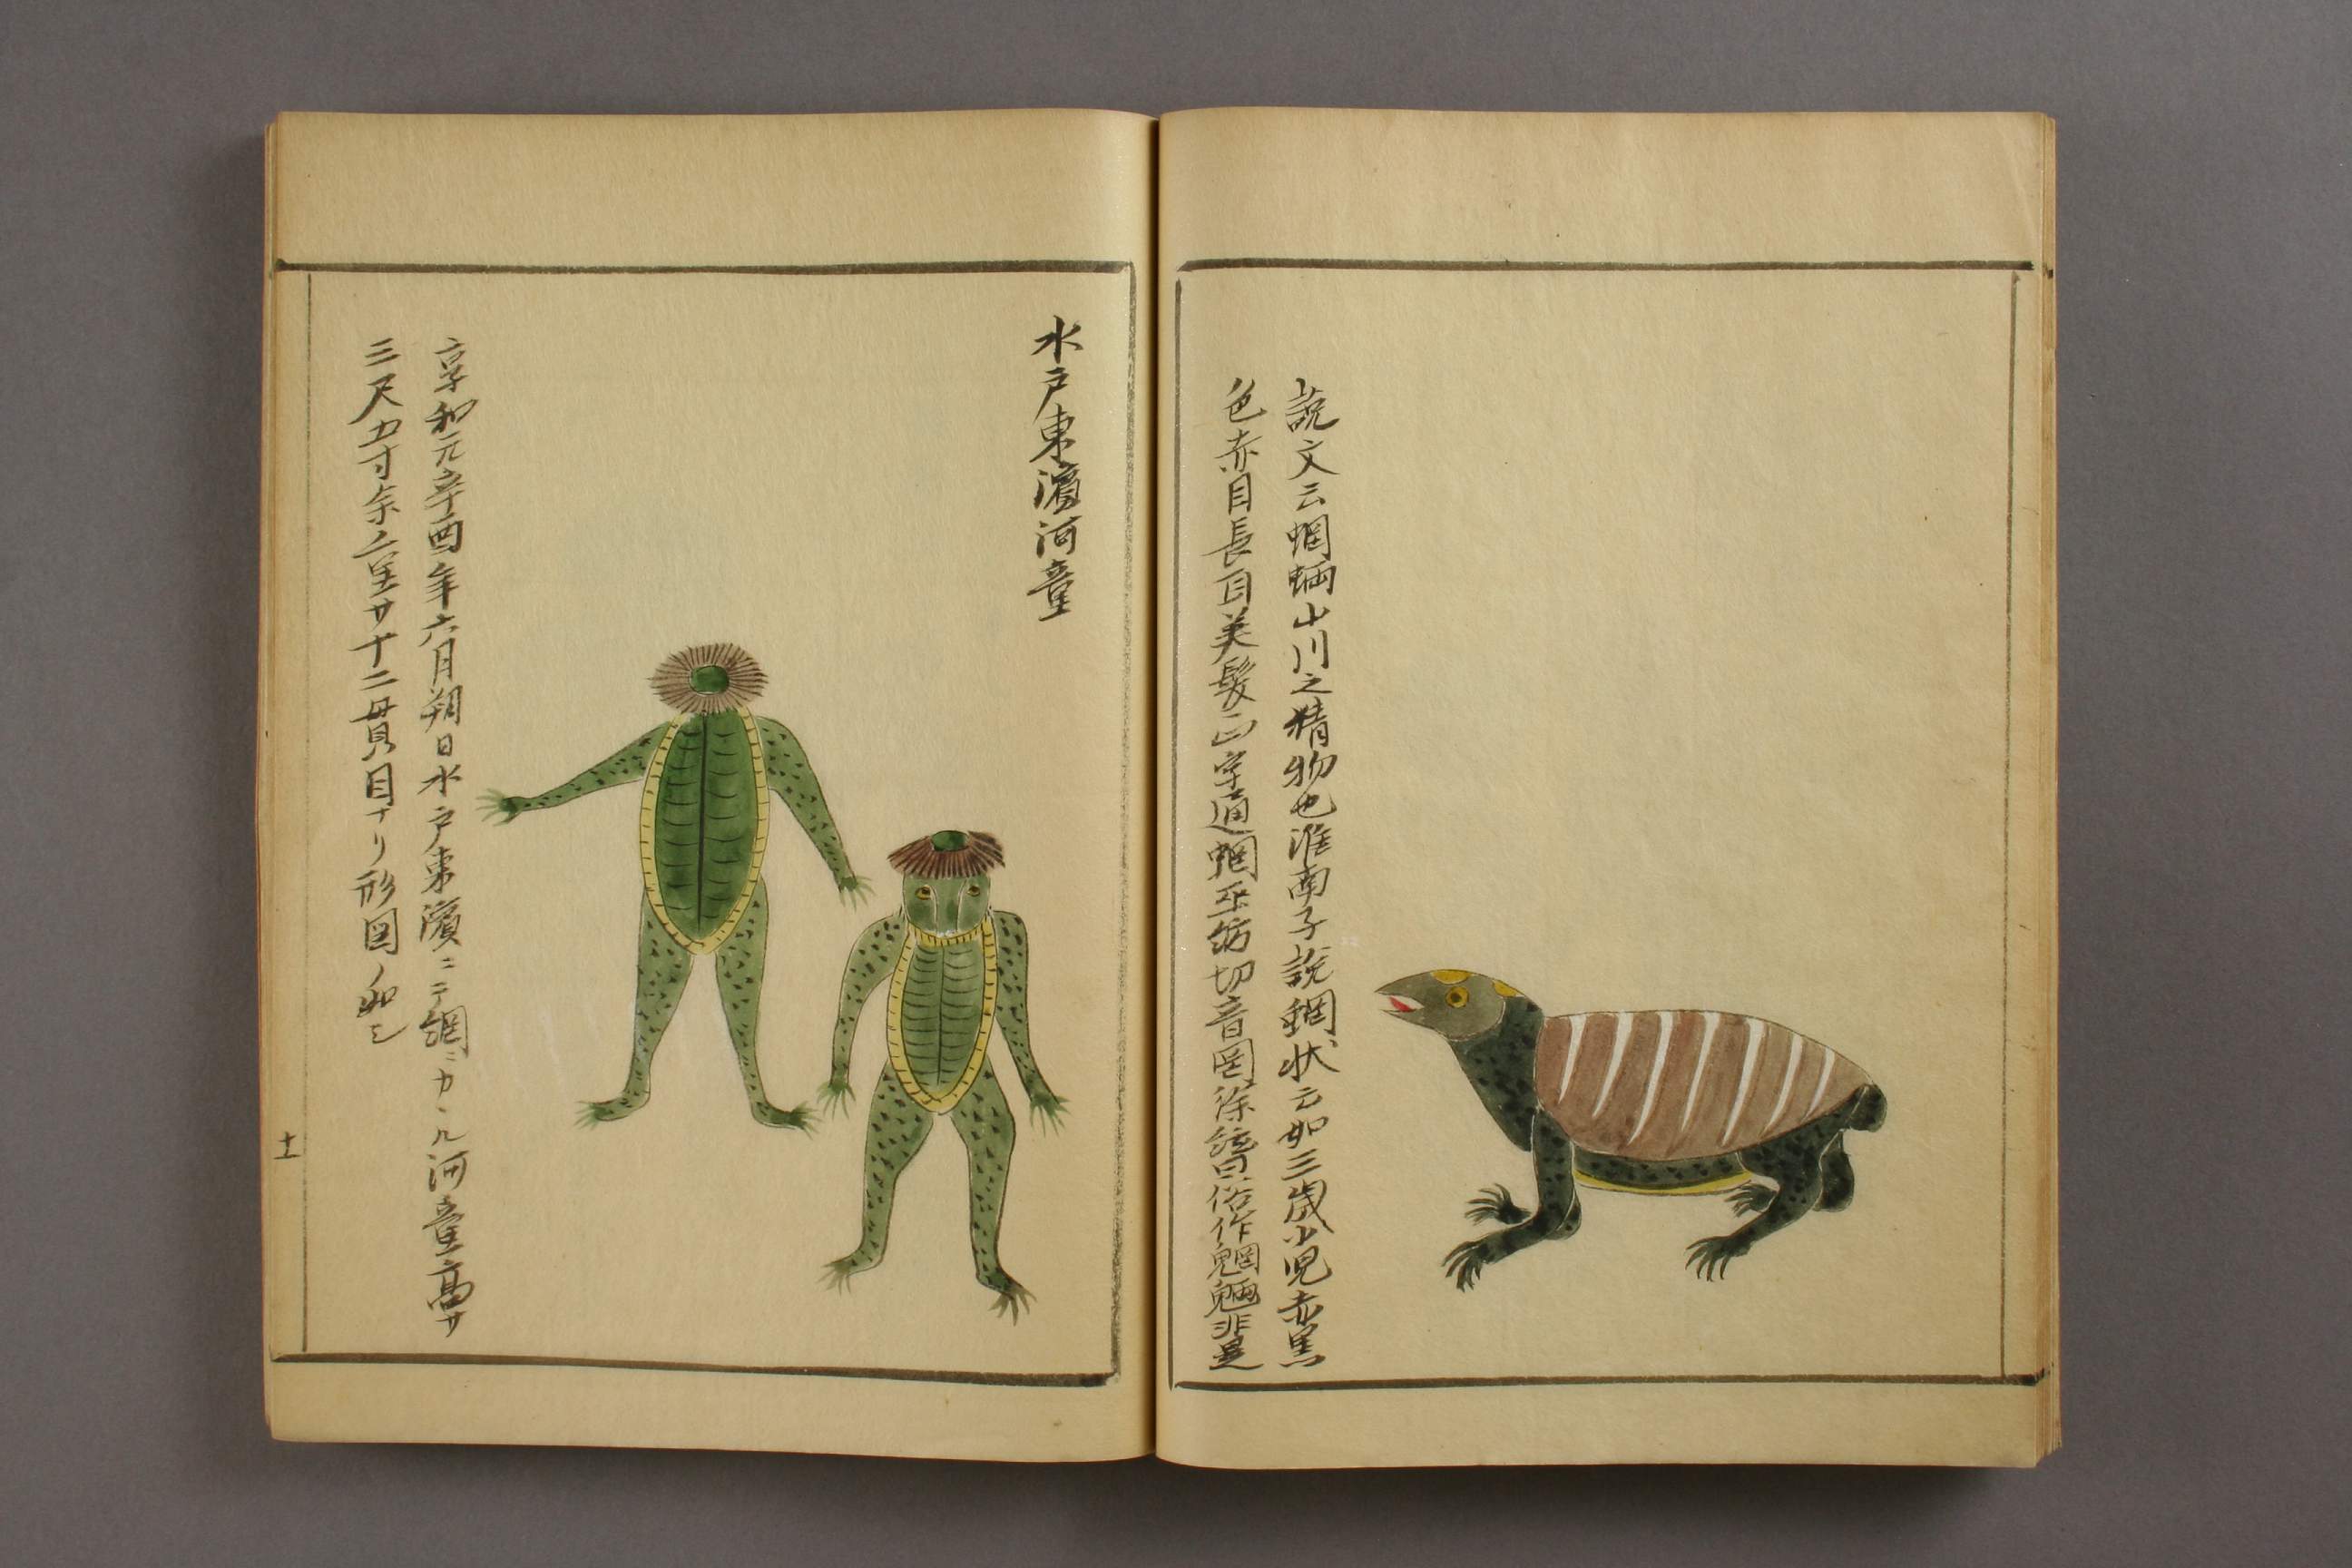 説文云蝄蜽山川之精物也淮南子説蝄状云如三歳小児赤黒
色赤目長耳美髪正字通蝄巫紡切音罔徐鉉曰俗作魍魎非是
水戸東濱河童
享和元辛酉年六月朔日水戸東濱ニテ網ニカヽル河童高サ
三尺五寸余重サ十二貫目ナリ形図ノ如シ
十一